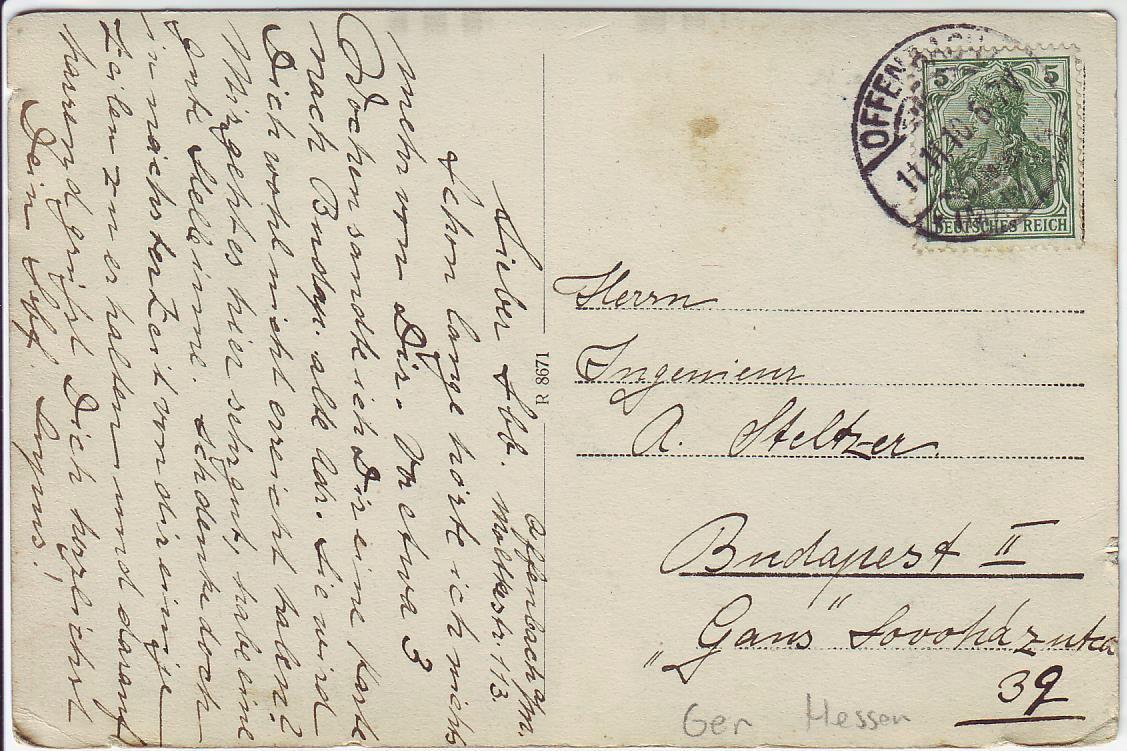 Offenbach a/m.
Moltkestr. 113.
Lieber Abb.
Schon lange hörte ich nichts
mehr von Dir. Vor etwa 3
Wochen sandte ich Dir eine Karte
nach Budap. alte Adr. Sie wird
Dich wohl nicht erreicht haben?
Mir geht es hier sehr gut, habe eine
gute Stelle inne. Schenke doch
in nächster Zeit von dir einige
Zeilen zu erhalten und darauf
harrend grüßt Dich herzlichst
Dein
R 8671
OFFENBACH
11.11.10. 6-7N
5 5
DEUTSCHES REICH
Herrn
Ingenieur
A. Steltzer
Budapest II
"Gans" Lovoház utca
39
Ger Hessen